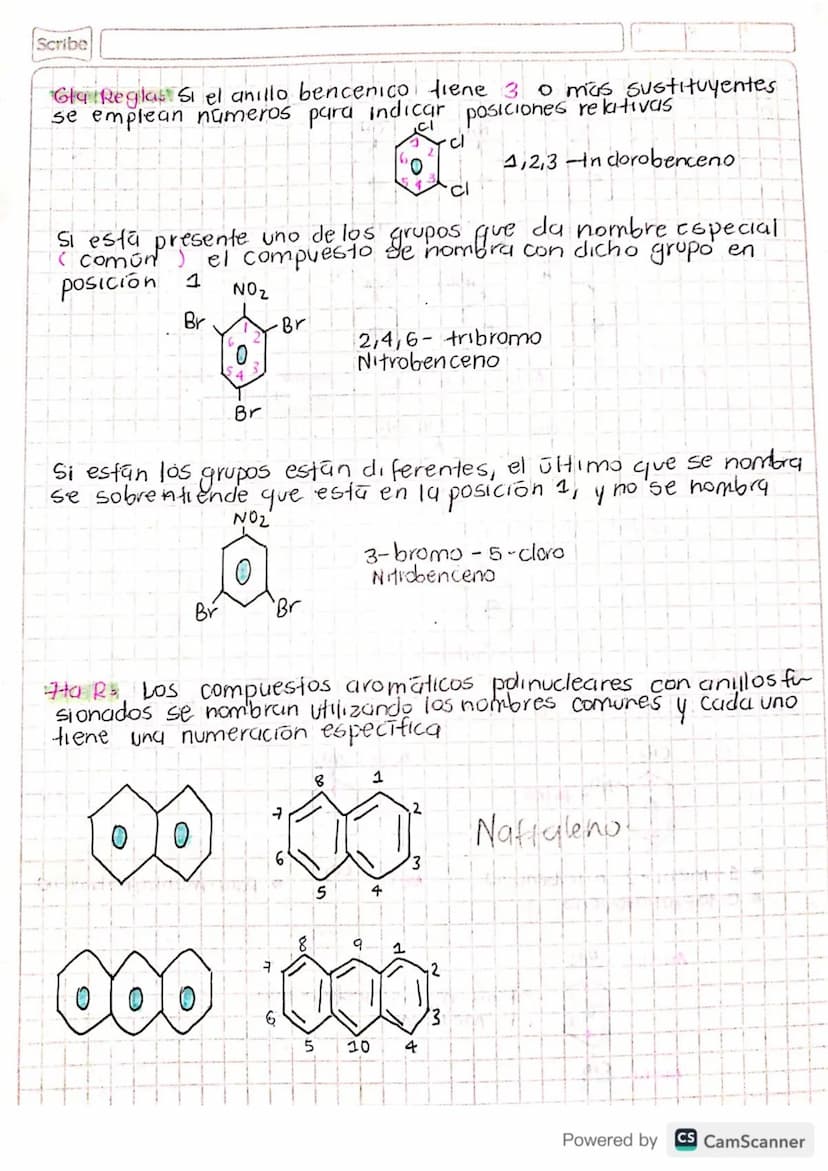 Scribe
6ta Reglas Si el anillo bencenico tiene 3 o más sustituyentes
se emplean números para indicar posiciones relativas
Cl
Cl
Cl
1
2
3
4
5
6
1,2,3 -tri clorobenceno
Si está presente uno de los grupos que da nombre especial
( común ) el compuesto se nombra con dicho grupo en
posición 1
NO2
Br
Br
1
2
3
4
5
6
Br
2,4,6- tribromo
Nitrobenceno
Si están los grupos están diferentes, el último que se nombra
se sobrentiende que está en la posición 1, y no se nombra
NO2
Br
Br
3-bromo - 5-cloro
Nitrobenceno
7ta R: Los compuestos aromáticos polinucleares con anillos fu-
sionados se nombran utilizando los nombres comunes y cada uno
tiene una numeración específica
8 1
7 2
6 3
5 4
Naftaleno
8 9 1
7 2
6 3
5 10 4
Powered by CS CamScanner